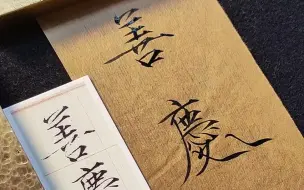 善
慶
善
慶